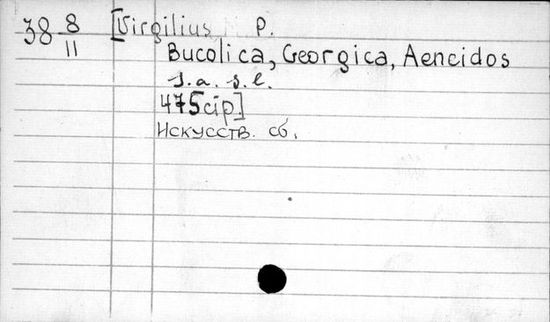 38 8/11 [Virgilius P.
Bucolica, Georgica, Aeneidos
s.a. s.l.
475 стр]
Искусств. сб.